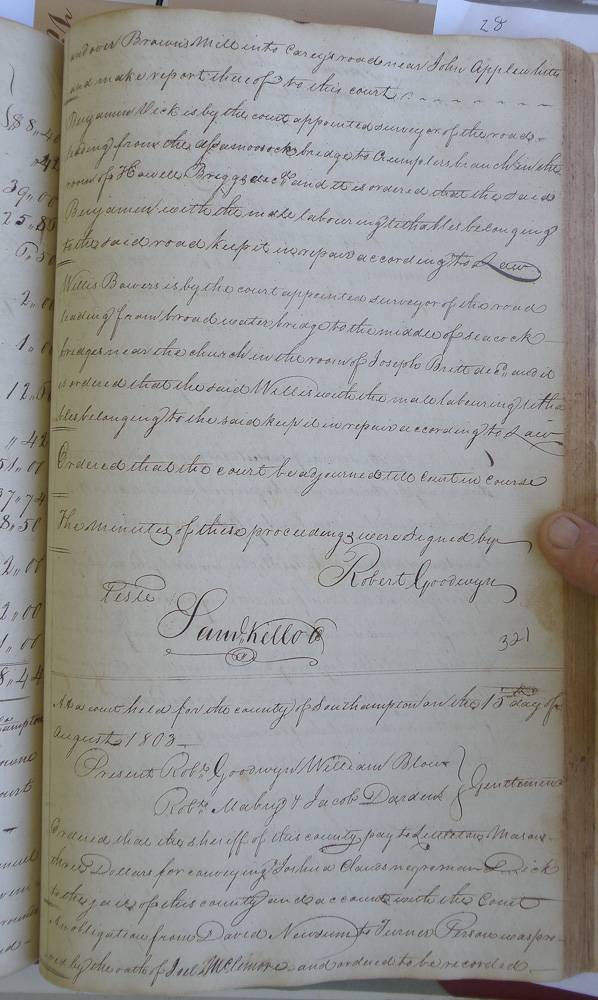 28
and over Browns Mill into Careys road near John Applewhites
and make report thereof to this court
Benjamin Vick is by the court appointed surveyor of the road
leading from the Assamoosock bridge to Crumplers branch in the
room of Howell Briggs decd. and it is ordered that the said
Benjamin with the male labouring tithables belonging
to the said road keep it in repair according to Law
Willis Bowers is by the court appointed surveyor of the road
leading from broad water bridge to the middle of seacock
bridges near the church in the room of Joseph Britt decd. and it
is ordered that the said Willis with the male labouring titha
bles belonging to the said keep it in repair according to Law
Ordered that the court be adjourned till Court in course
The minutes of these proceedings were signed by
Robert Goodwyn
Teste
Saml. Kello
321
At a court held for the county of Southampton on the 15th day of
August 1803
Present Robt. Goodwyn William Blow
Gentlemen
Robt. Mabry & Jacob Darden
Ordered that the sheriff of this county pay to Mason
three Dollars for conveying Joshua Clauds negroe man Dick
to the jail of this county and account with the Court
An obligation from David Newsum to Turner Person was pro
ved by the oath of Joel McLemore and ordered to be recorded